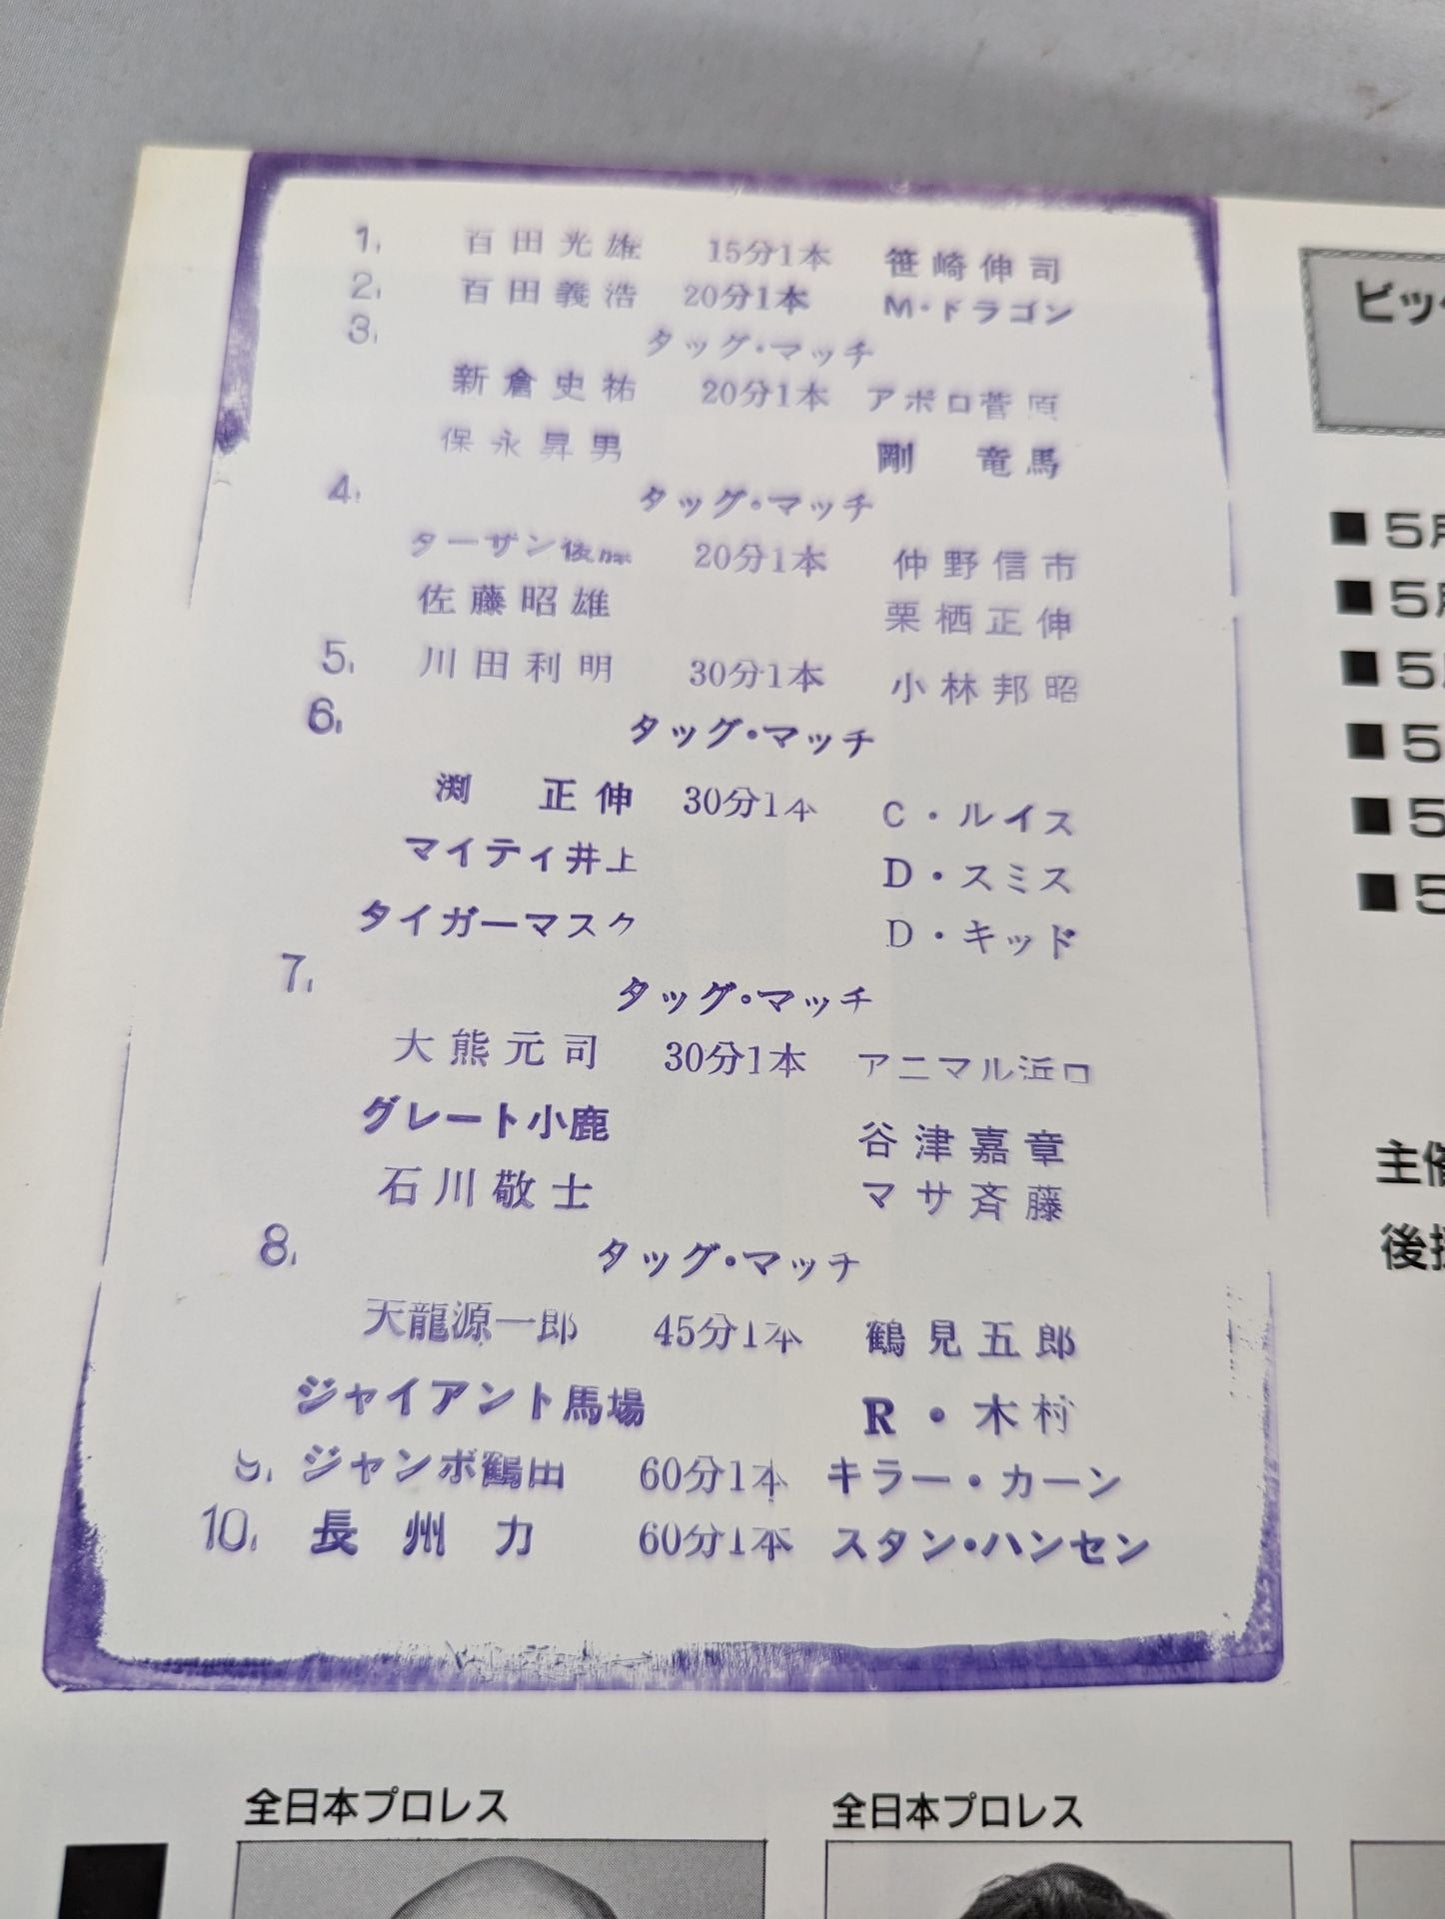 1. 百田光雄 15分1本 笹崎伸司
2. 百田義浩 20分1本 M・ドラゴン
3. タッグ・マッチ
新倉史祐 20分1本 アポロ菅原
保永昇男 剛竜馬
4. タッグ・マッチ
ターザン後藤 20分1本 仲野信市
佐藤昭雄 栗栖正伸
5. 川田利明 30分1本 小林邦昭
6. タッグ・マッチ
渕正伸 30分1本 C・ルイス
マイティ井上 D・スミス
タイガーマスク D・キッド
7. タッグ・マッチ
大熊元司 30分1本 アニマル浜口
グレート小鹿 谷津嘉章
石川敬士 マサ斉藤
8. タッグ・マッチ
天龍源一郎 45分1本 鶴見五郎
ジャイアント馬場 R・木村
9. ジャンボ鶴田 60分1本 キラー・カーン
10. 長州力 60分1本 スタン・ハンセン
ビッ
■5月
■5月
■5
■5
■5
■5
主催
後援
全日本プロレス
全日本プロレス